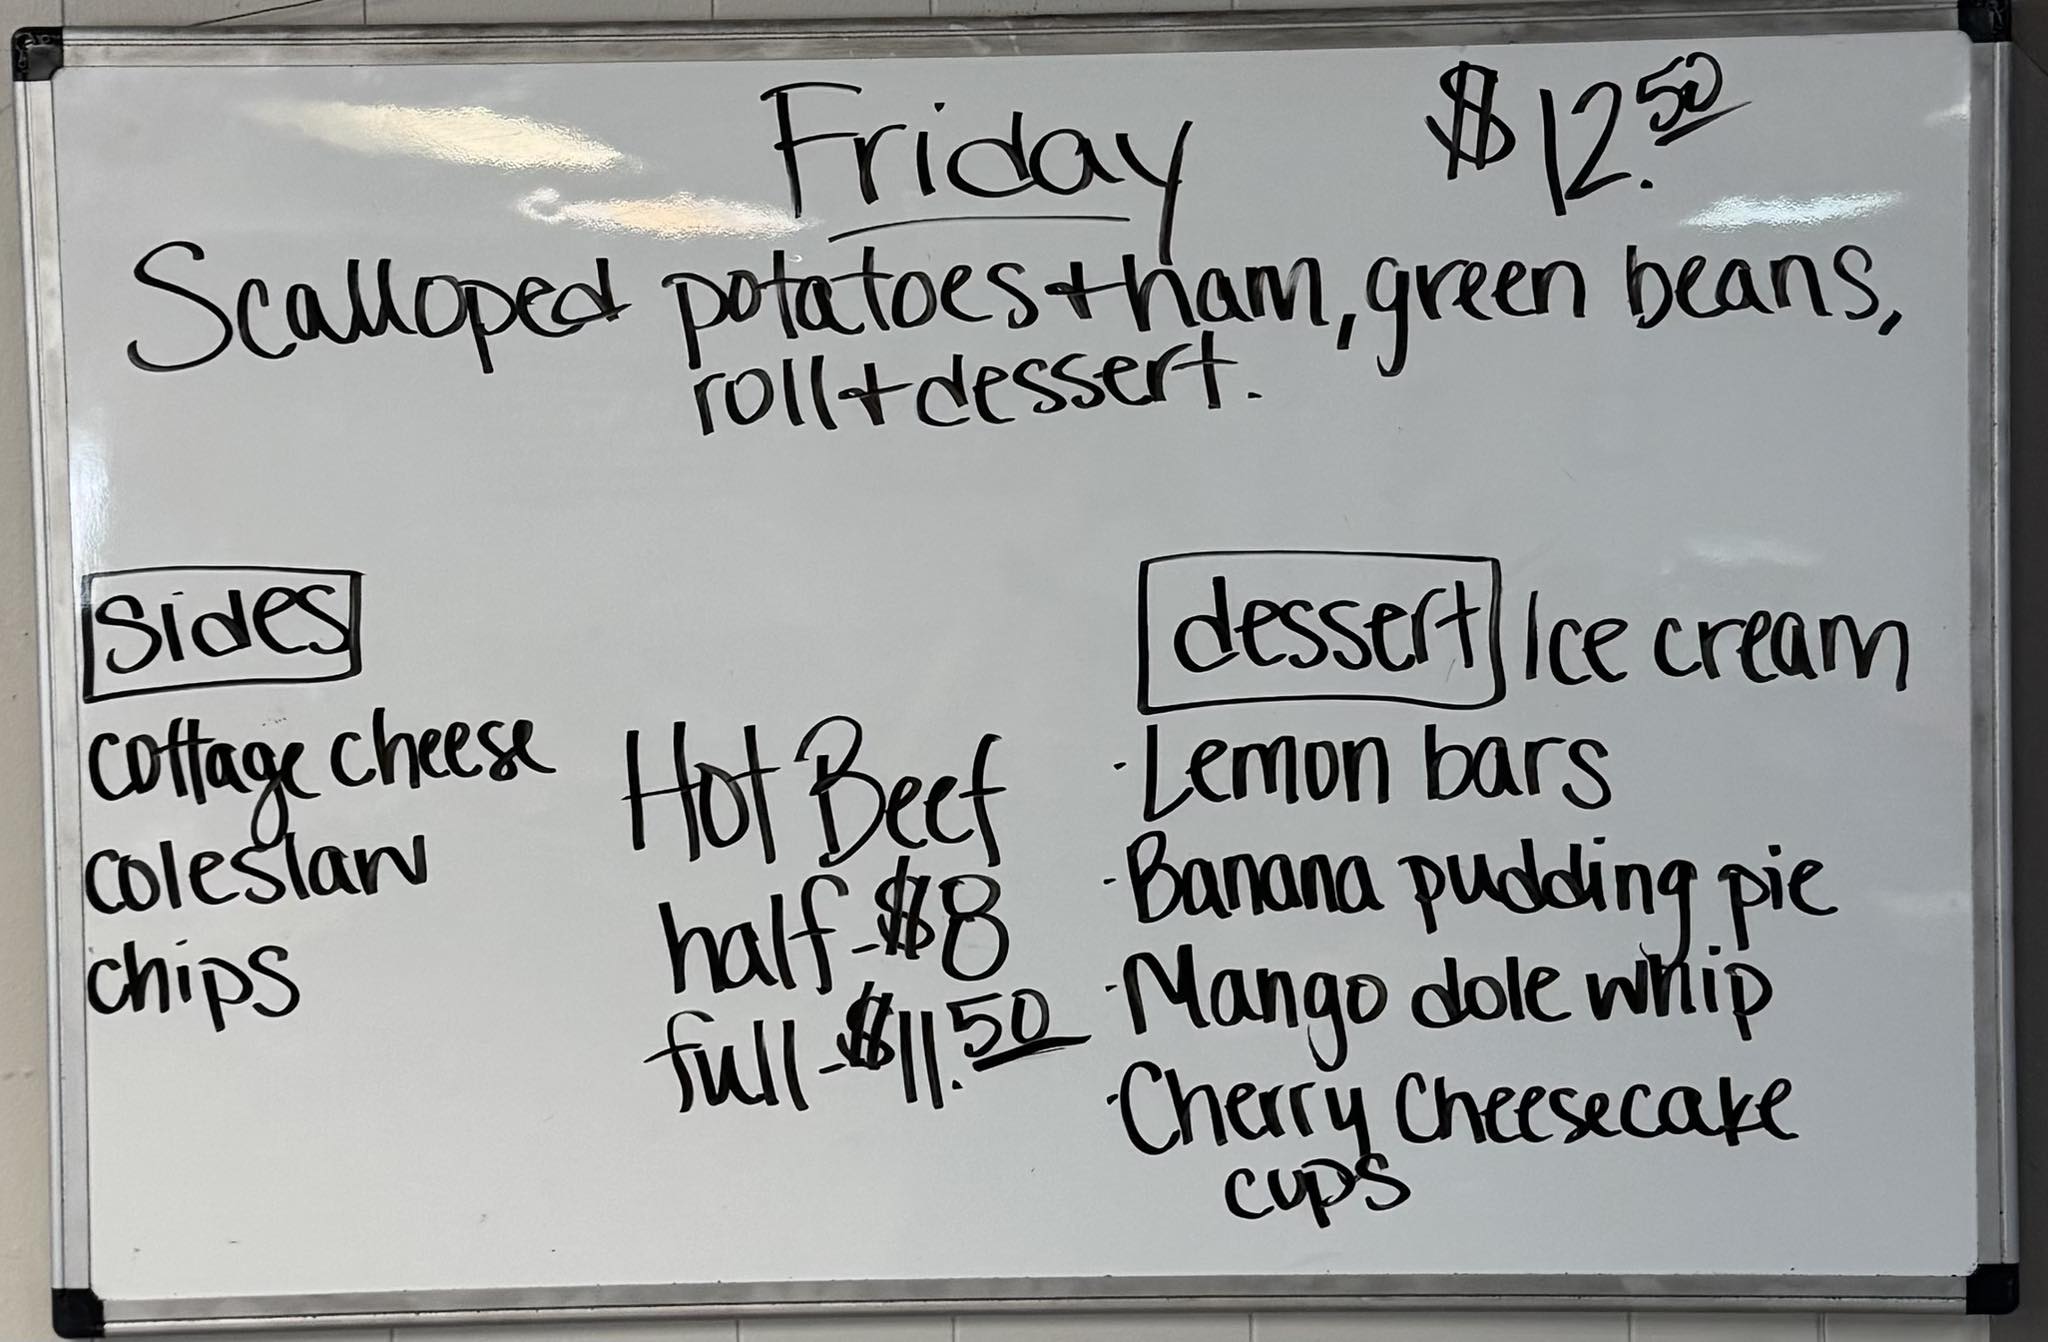 Friday $12.50
Scalloped potatoes + ham, green beans,
roll + dessert.
Sides
cottage cheese
coleslaw
chips
Hot Beef
half - $8
full - $11.50
dessert Ice cream
· Lemon bars
· Banana pudding pie
· Mango dole whip
· Cherry Cheesecake
cups